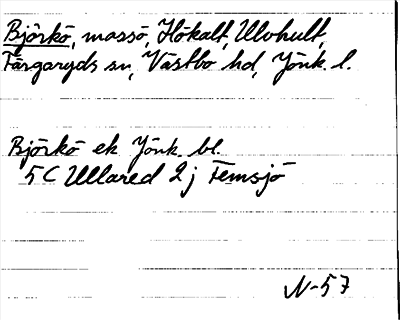 Björkö, mossö, Hökalt, Ulvhult,
Färgaryds sn, Västbo hd, Jönk. l.
Björkö ek Jönk. bl.
5 C Ullared 2 j Femsjö
N-57